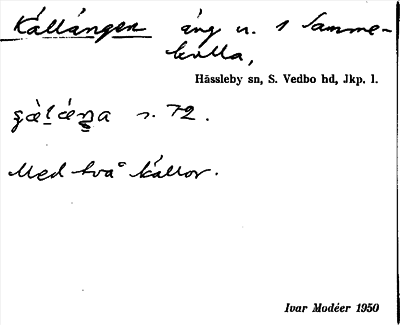 Källängen äng n. 1 Samme-
kulla,
Hässleby sn, S. Vedbo hd, Jkp. l.
s. 72.
Med två källor.
Ivar Modéer 1950